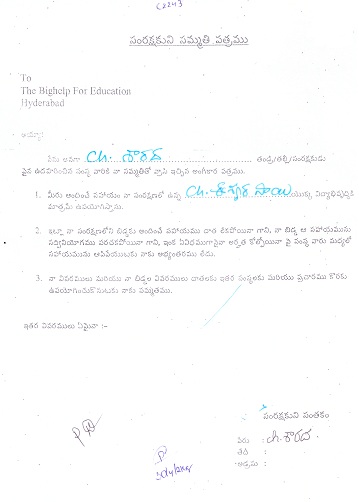 సంరక్షకుని సమ్మతి పత్రము
To
The Bighelp For Education
Hyderabad
అయ్యా!
నేను అనగా Ch. శారద తండ్రి/తల్లి/సంరక్షకుడు
పైన ఉదహరించిన సంస్థ వారికి నా సమ్మతితో వ్రాసి ఇచ్చిన అంగీకార పత్రము.
1. మీరు అందించే సహాయం నా సంరక్షణలో ఉన్న Ch. సాయి యొక్క విద్యాభివృద్ధికి
మాత్రమే ఉపయోగిస్తాను.
2. ఇట్లా నా సంరక్షణలోని బిడ్డకు అందించే సహాయము దాత లేకపోయినా గాని, నా బిడ్డ ఆ సహాయమును
సద్వినియోగము పరచకపోయినా గాని, ఇంక ఏవిధముగానైనా అర్హత కోల్పోయినా పై సంస్థ వారు మధ్యలో
సహాయమును ఆపివేయుటకు నాకు అభ్యంతరము లేదు.
3. నా వివరములు మరియు నా బిడ్డల వివరములు దాతలకు ఇతర సంస్థలకు మరియు ప్రచారము కొరకు
ఉపయోగించుకొనుటకు నాకు సమ్మతము.
ఇతర వివరములు ఏమైనా :-
సంరక్షకుని సంతకం
పేరు : Ch. శారద
తేది :
చిరునామ :